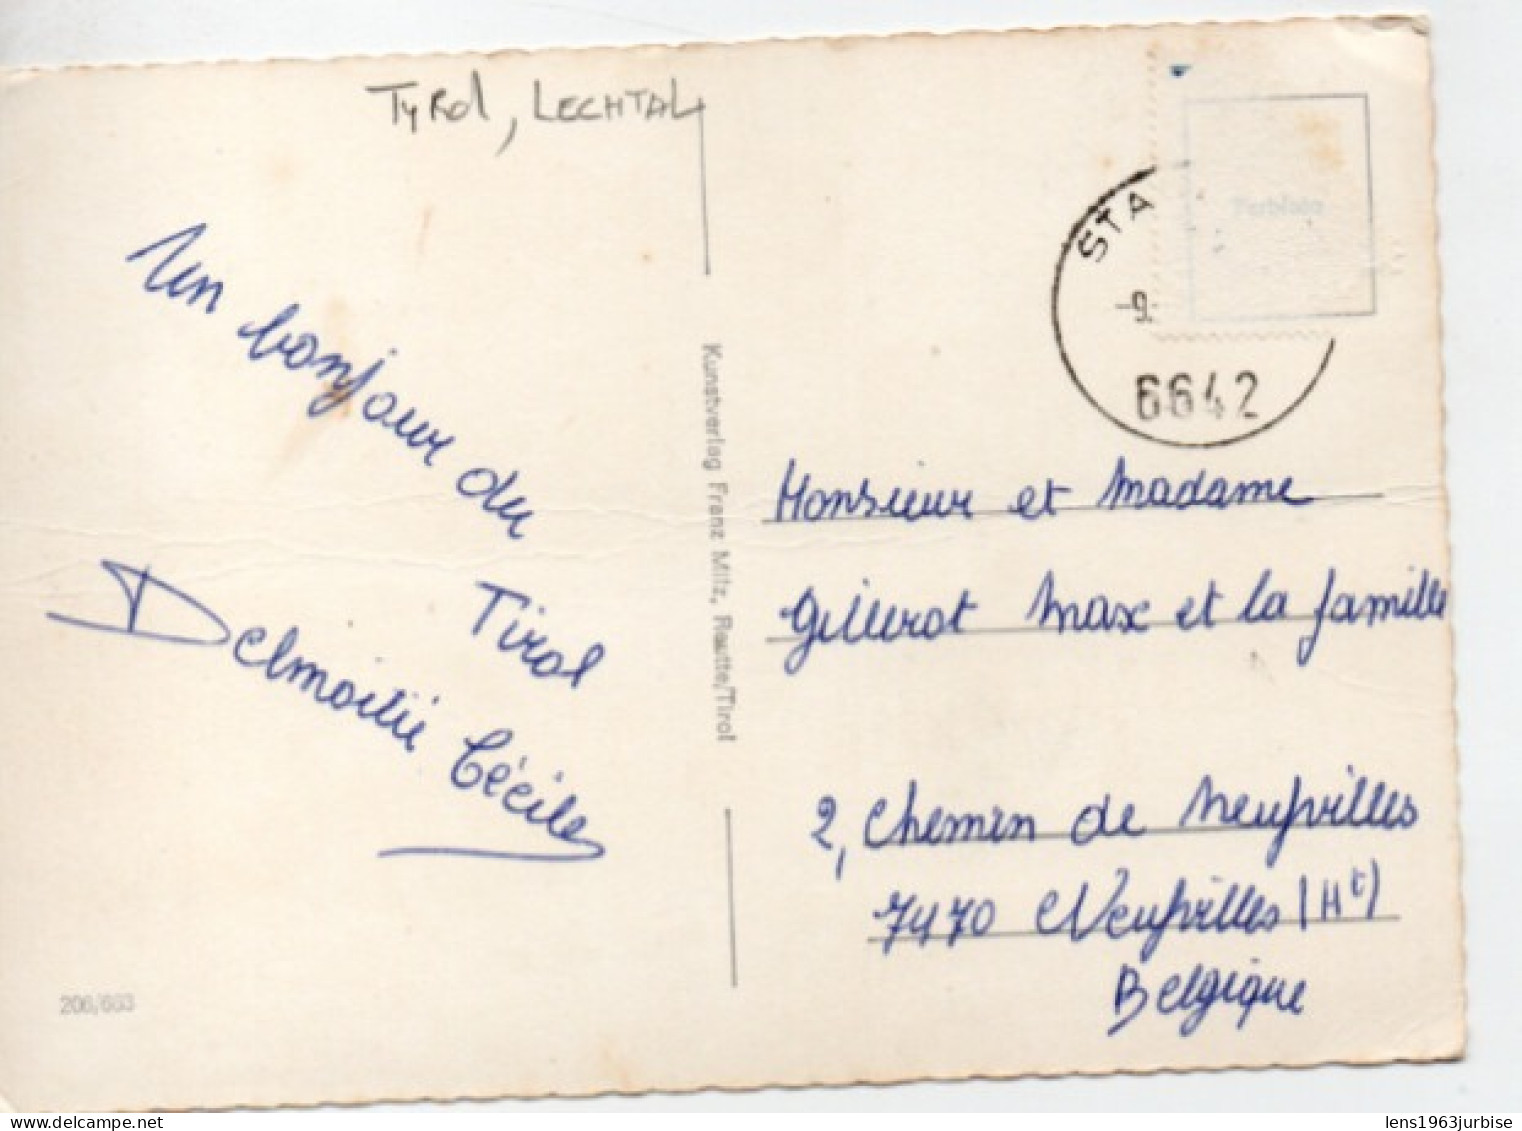 Tyrol, LECHTAL
Un bonjour du
Tirol
Delmoitié Cécile
206/663
Kunstverlag Franz Milz, Reutte/Tirol
STA
-9.
6642
Monsieur et Madame
Gillerot Max et la famille
2, Chemin de Neufvilles
7470 Neufvilles (Ht)
Belgique
delcampe.net
lens1963jurbise